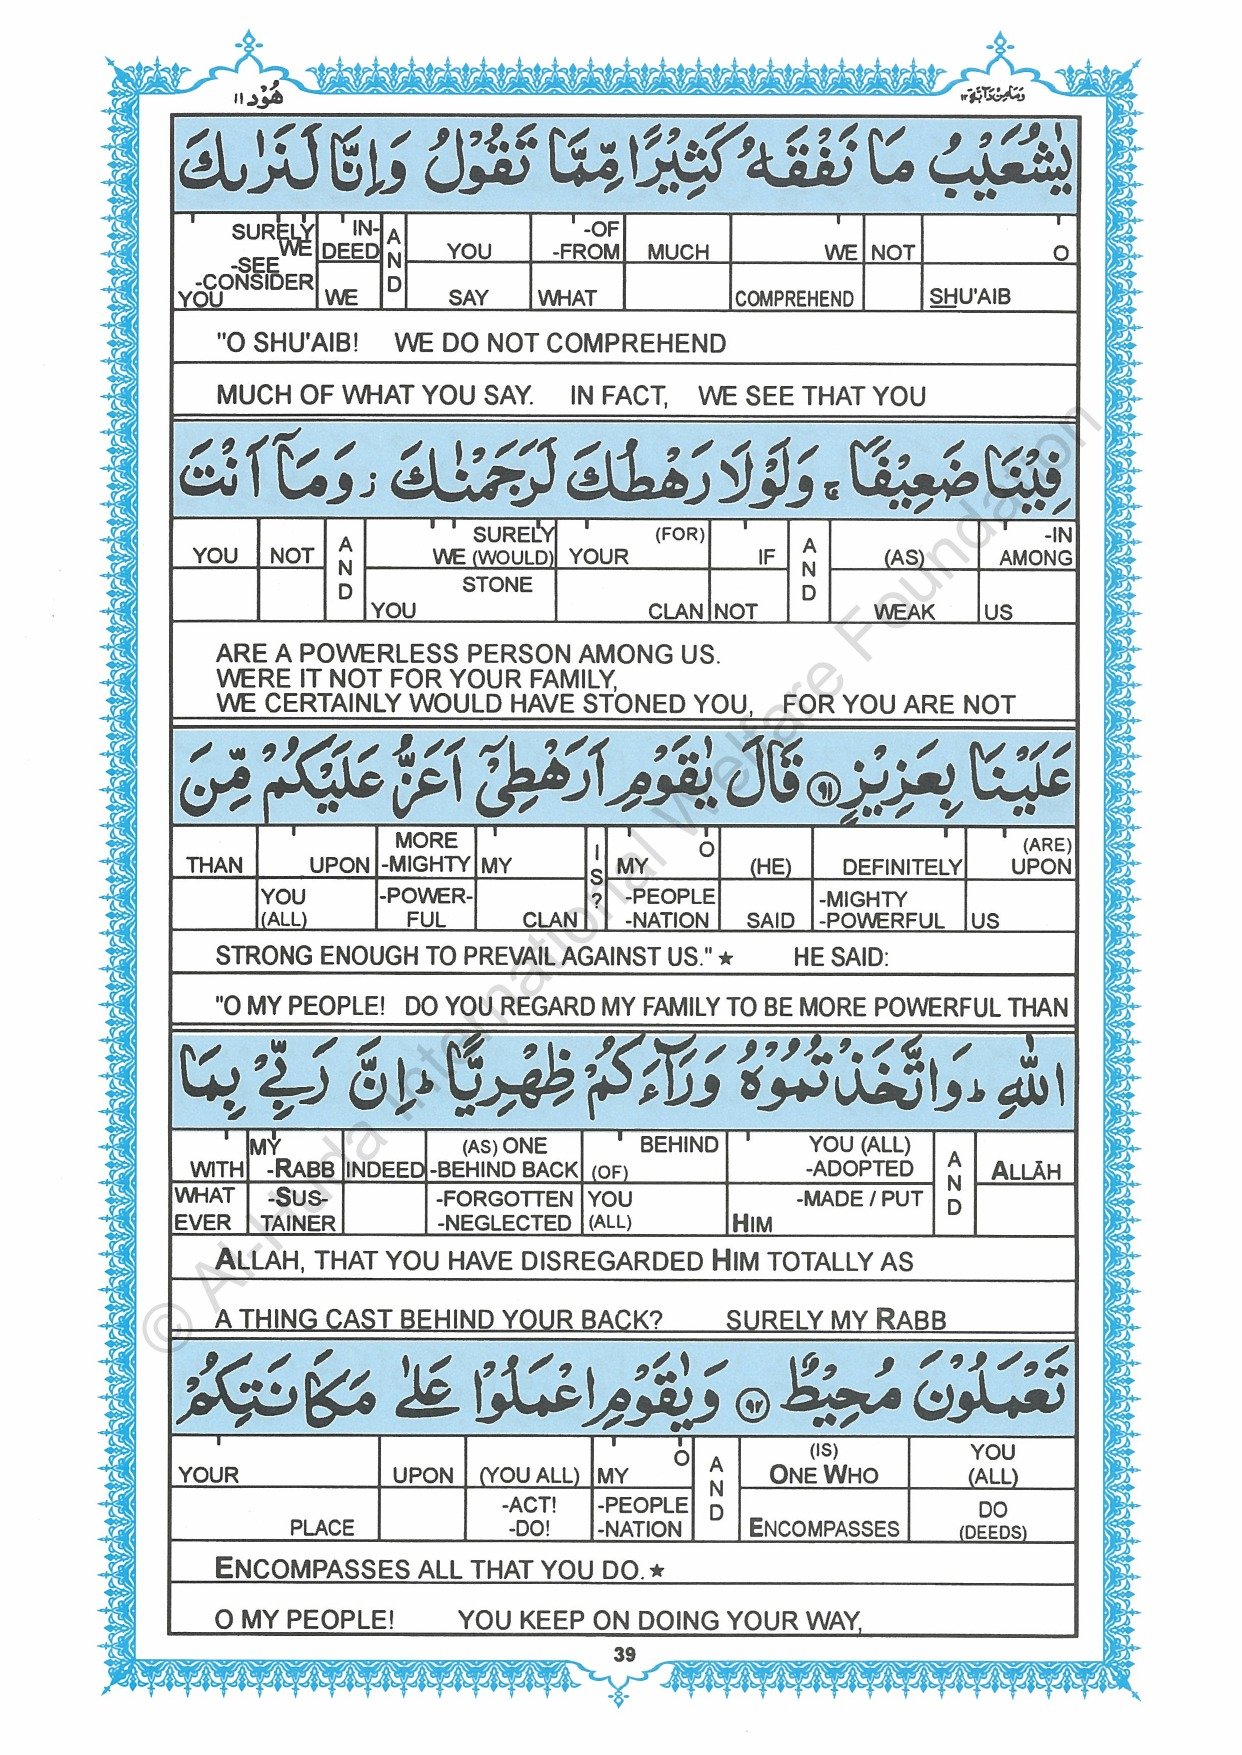 هُوْد ١١
وَمَا مِنْ دَآبَّة ١٢
يٰشُعَيْبُ مَا نَفْقَهُ كَثِيْرًا مِّمَّا تَقُوْلُ وَاِنَّا لَنَرٰىكَ
SURELY WE -SEE -CONSIDER YOU
IN-DEED WE
AND
YOU SAY
-OF -FROM WHAT
MUCH
WE COMPREHEND
NOT
O SHU'AIB
"O SHU'AIB! WE DO NOT COMPREHEND
MUCH OF WHAT YOU SAY. IN FACT, WE SEE THAT YOU
فِيْنَا ضَعِيْفًا ۚ وَلَوْلَا رَهْطُكَ لَرَجَمْنٰكَ ۡ وَمَآ اَنْتَ
YOU
NOT
AND
SURELY WE (WOULD) STONE YOU
(FOR) YOUR CLAN
IF NOT
AND
(AS) WEAK
-IN AMONG US
ARE A POWERLESS PERSON AMONG US.
WERE IT NOT FOR YOUR FAMILY,
WE CERTAINLY WOULD HAVE STONED YOU, FOR YOU ARE NOT
عَلَيْنَا بِعَزِيْزٍ ﴿٩١﴾ قَالَ يٰقَوْمِ اَرَهْطِيْٓ اَعَزُّ عَلَيْكُمْ مِّنَ
THAN
UPON YOU (ALL)
MORE -MIGHTY -POWER-FUL
MY CLAN
IS?
O MY -PEOPLE -NATION
(HE) SAID
DEFINITELY -MIGHTY -POWERFUL
(ARE) UPON US
STRONG ENOUGH TO PREVAIL AGAINST US." ★ HE SAID:
"O MY PEOPLE! DO YOU REGARD MY FAMILY TO BE MORE POWERFUL THAN
اللّٰهِ ؕ وَاتَّخَذْتُمُوْهُ وَرَآءَكُمْ ظِهْرِيًّا ؕ اِنَّ رَبِّيْ بِمَا
WITH WHAT EVER
MY -RABB -SUS-TAINER
INDEED
(AS) ONE -BEHIND BACK -FORGOTTEN -NEGLECTED
BEHIND (OF) YOU (ALL)
YOU (ALL) -ADOPTED -MADE / PUT HIM
AND
ALLĀH
ALLAH, THAT YOU HAVE DISREGARDED HIM TOTALLY AS
A THING CAST BEHIND YOUR BACK? SURELY MY RABB
تَعْمَلُوْنَ مُحِيْطٌ ﴿٩٢﴾ وَيٰقَوْمِ اعْمَلُوْا عَلٰى مَكَانَتِكُمْ
YOUR PLACE
UPON
(YOU ALL) -ACT! -DO!
O MY -PEOPLE -NATION
AND
(IS) ONE WHO ENCOMPASSES
YOU (ALL) DO (DEEDS)
ENCOMPASSES ALL THAT YOU DO. ★
O MY PEOPLE! YOU KEEP ON DOING YOUR WAY,
39
© Al-Huda International Welfare Foundation